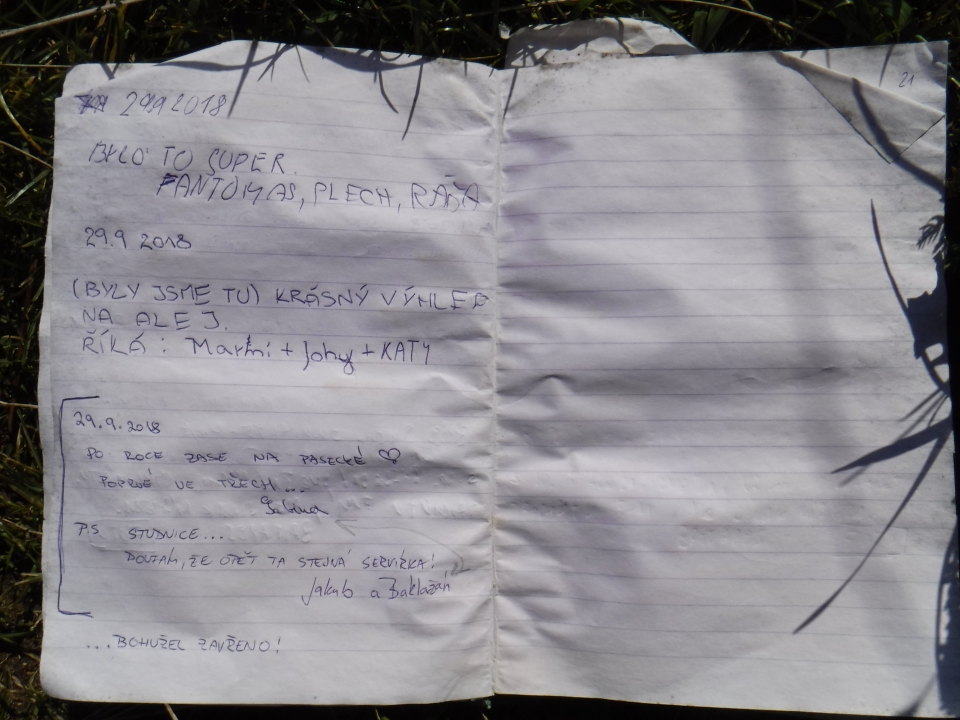 29.9 2018
21
BYLO TO SUPER.
FANTOMAS, PLECH, RÁĎA
29.9 2018
(BYLY JSME TU) KRÁSNÝ VÝHLED
NA ALEJ.
ŘÍKÁ: Marťi + Johy + KATY
29.9.2018
PO ROCE ZASE NA PASECKÉ ♡
POPRVÉ VE TŘECH...
P.S. STUDNICE...
DOUFÁM, ŽE OPĚT TA STEJNÁ SERVÍRKA!
Jakub a Baklažán
...BOHUŽEL ZAVŘENO!